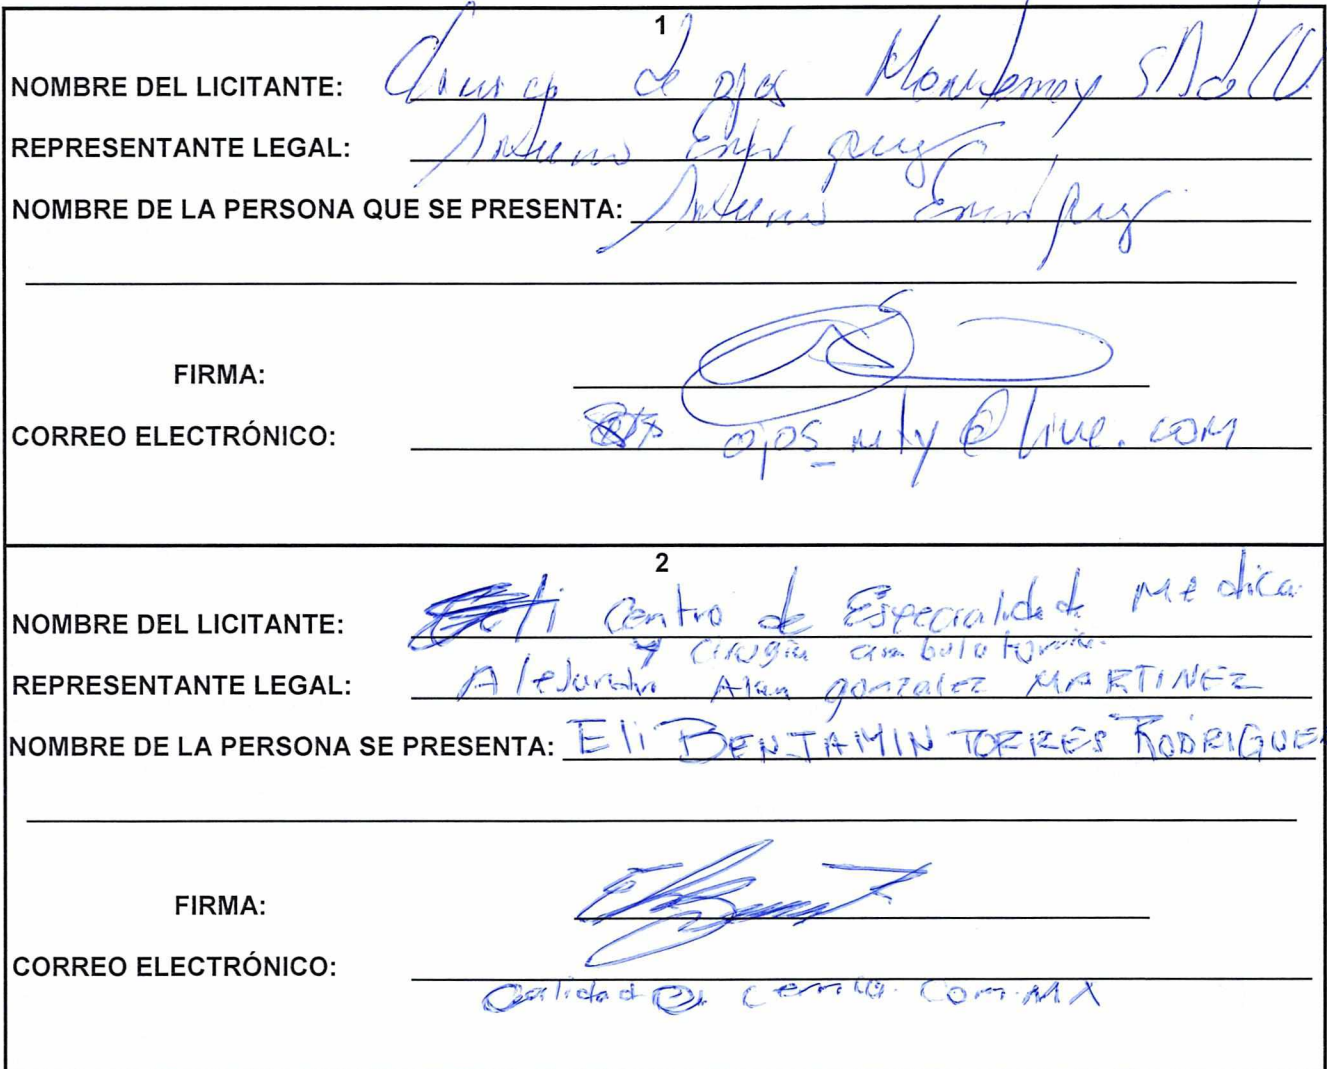 1
NOMBRE DEL LICITANTE: Clinica de ojos Monterrey SA de CV
REPRESENTANTE LEGAL: Arturo Enriquez
NOMBRE DE LA PERSONA QUE SE PRESENTA: Arturo Enriquez
FIRMA:
CORREO ELECTRÓNICO: ojos_mty@live.com
2
NOMBRE DEL LICITANTE: Centro de Especialidad Medica
y cirugia ambulatoria
REPRESENTANTE LEGAL: Alejandro Alan gonzalez MARTINEZ
NOMBRE DE LA PERSONA SE PRESENTA: Eli BENJAMIN TORRES RODRIGUEZ
FIRMA:
CORREO ELECTRÓNICO: